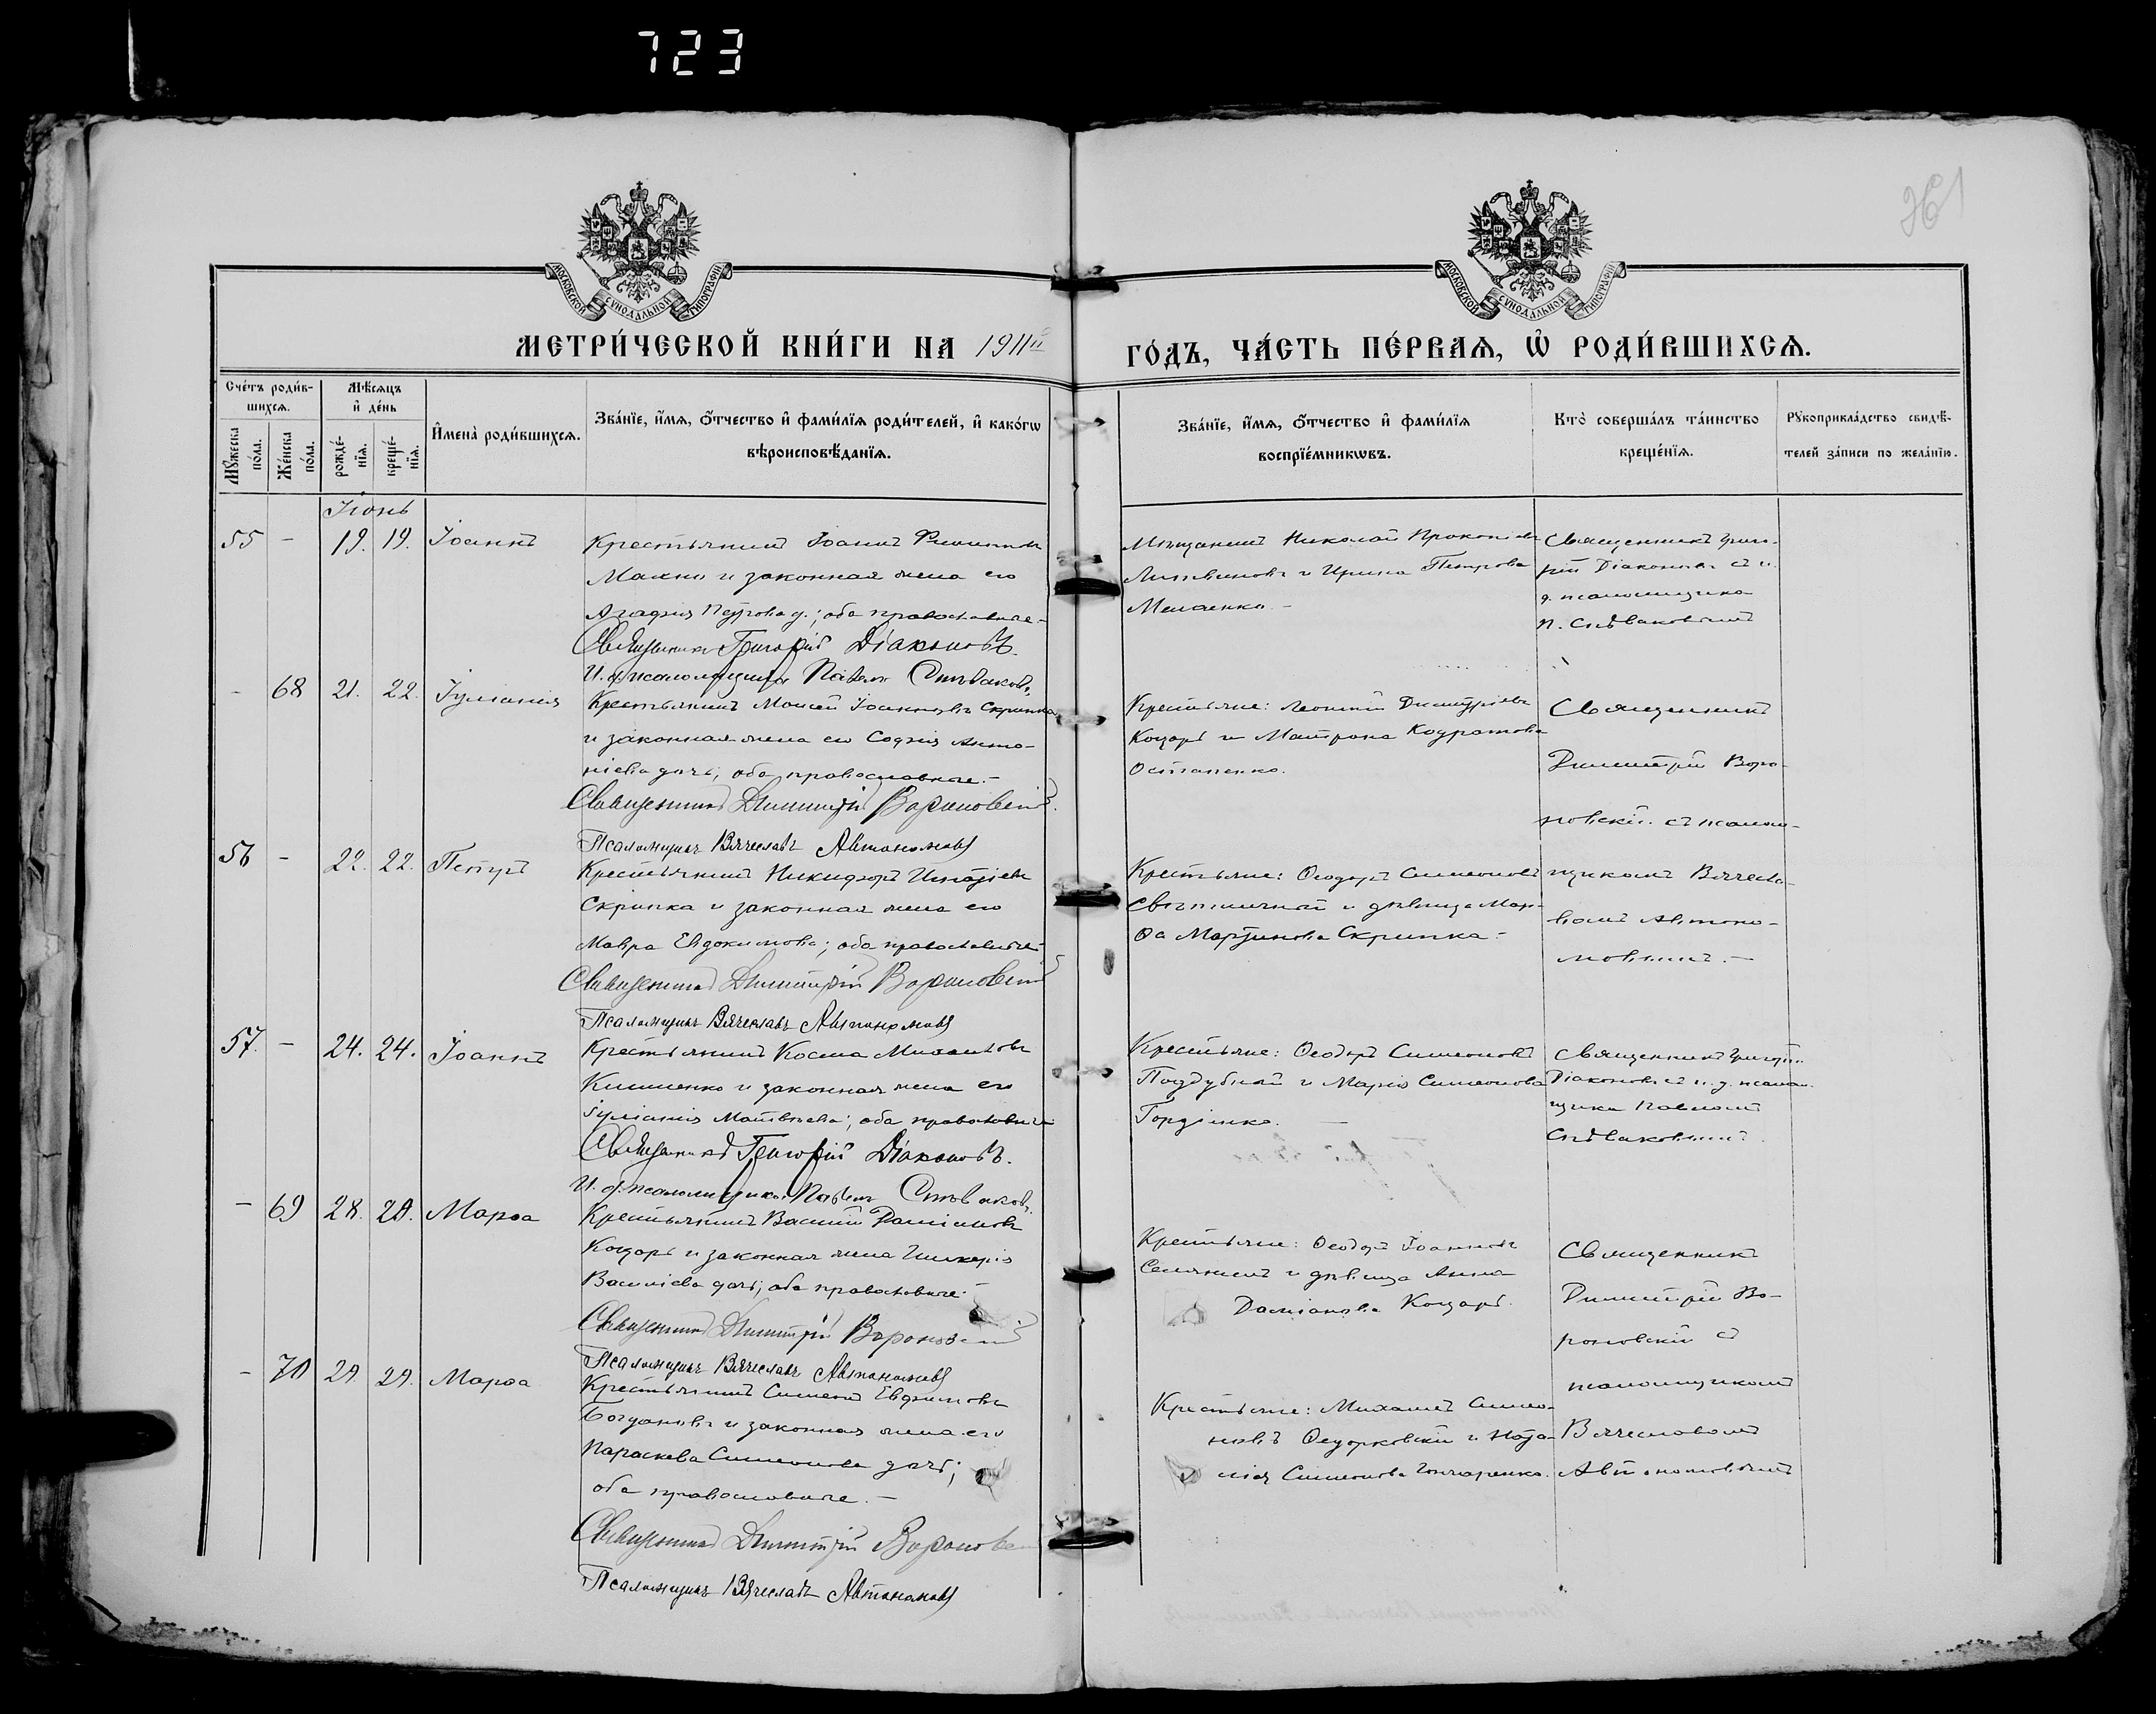 723
361
МОСКОВСКОЙ СѴНОДАЛЬНОЙ ТИПОГРАФІИ
МОСКОВСКОЙ СѴНОДАЛЬНОЙ ТИПОГРАФІИ
МЕТРИ́ЧЕСКОЙ КНИ́ГИ НА 1911й ГО́ДЪ, ЧА́СТЬ ПЕ́РВАЯ, Ѡ РОДИ́ВШИХСЯ.
Сче́тъ роди́в-
шихся.
Мꙋ́жеска по́ла.
Же́нска по́ла.
Мѣ́сяцъ
и҆ де́нь
рожде́-
нїя.
креще́-
нїя.
И҆мена̀ роди́вшихся.
Зва́нїе, и҆́мя, ѻ҆́тчество и҆ фами́лїя роди́телей, и҆ како́гѡ
вѣроисповѣ́данїя.
Зва́нїе, и҆́мя, ѻ҆́тчество и҆ фами́лїя
воспрїе́мникѡвъ.
Кто̀ соверша́лъ та́инство
креще́нїя.
Рꙋкоприкла́дство свидѣ́-
телей за́писи по жела́нїю.
Іюнь
55 - 19. 19. Іоаннъ
Крестьянинъ Іоаннъ
Махно и законная жена его
Агафія Петрова д.; оба православные.-
Священникъ Григорій Діаконовъ.
И. д. псаломщика Павелъ
Мѣщанинъ Николай Прокопіевъ
Литвиновъ и Ирина Петрова
Священникъ Григо-
рій Діаконовъ съ и.
д. псаломщика
П.
- 68 21. 22. Іуліанія
Крестьянинъ Моисей Іоанновъ Скрипка
и законная жена его Софія Анто-
ніева дочь, оба православные.-
Священникъ Димитрій Вороновскій.
Псаломщикъ Вячеславъ Автономовъ
Крестьяне: Леонтій Димитріевъ
Коцарь и Матрона Кодратова
Остапенко.
Священникъ
Димитрій Воро-
новскій съ псалом-
щикомъ Вячесла-
вомъ Автоно-
мовымъ.-
56 - 22. 22. Петръ
Крестьянинъ Никифоръ Игнатіевъ
Скрипка и законная жена его
Мавра Евдокимова; оба православные
Священникъ Димитрій Вороновскій
Псаломщикъ Вячеславъ Автономовъ
Крестьяне: Ѳеодоръ Симеоновъ
и дѣвица Мар-
ѳа Мартинова Скрипка.-
57. - 24. 24. Іоаннъ
Крестьянинъ Косма Михаиловъ
и законная жена его
Іуліанія Матвѣева; оба православные
Священникъ Григорій Діаконовъ.
И. д. псаломщика Павелъ
Крестьяне: Ѳеодоръ Симеоновъ
Поддубный и Марія Симеонова
Гордіенко. -
Священникъ Григорій
Діаконовъ съ и. д. псалом-
щика Павломъ
- 69 28. 29. Марѳа
Крестьянинъ Василій Даміановъ
Коцарь и законная жена Гликерія
Василіева дочь; оба православные.-
Священникъ Димитрій Вороновскій
Псаломщикъ Вячеславъ Автономовъ
Крестьяне: Ѳеодоръ Іоанновъ
и дѣвица Анна
Даміанова Коцарь.
Священникъ
Димитрій Во-
роновскій съ
псаломщикомъ
Вячеславомъ
Автономовымъ
- 70 29 29. Марѳа
Крестьянинъ Симеонъ Евфимовъ
Богдановъ и законная жена его
Параскева Симеонова дочь;
оба православные.-
Священникъ Димитрій Вороновскій
Псаломщикъ Вячеславъ Автономовъ
Крестьяне: Михаилъ Симео-
новъ Ѳедорковскій и Ната-
лія Симеонова Гончаренко.